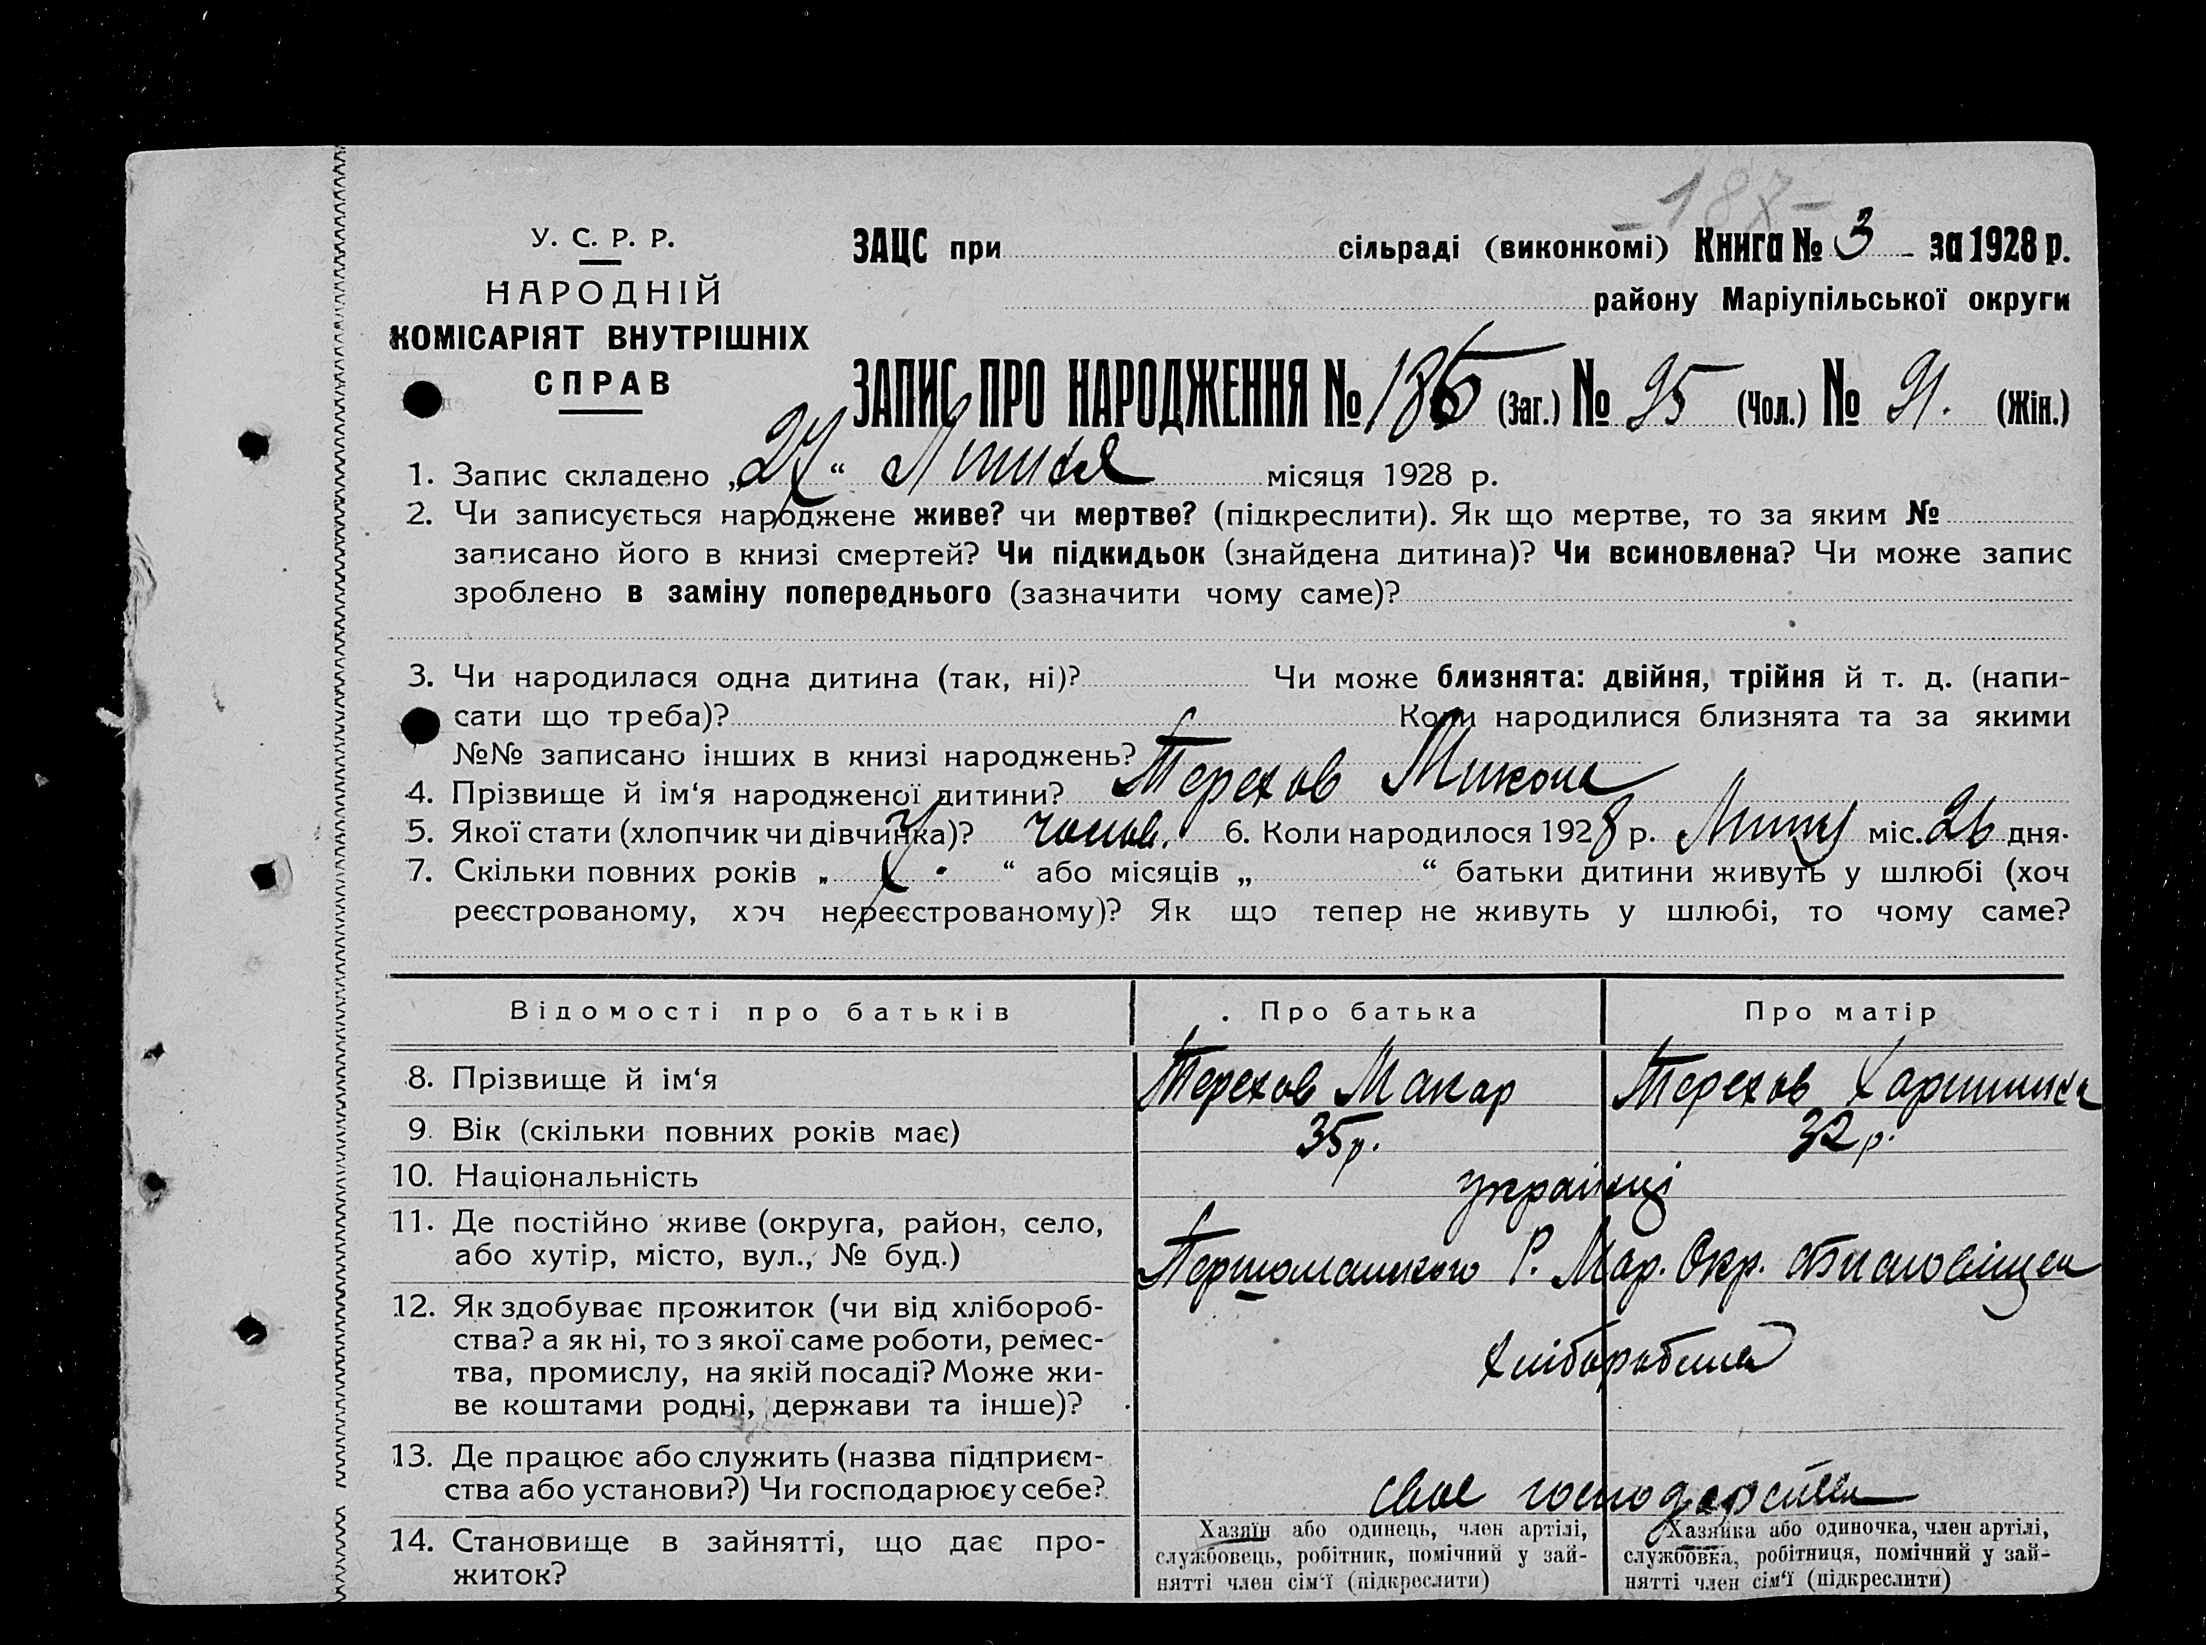 -187-
У. С. Р. Р.
НАРОДНІЙ
КОМІСАРІЯТ ВНУТРІШНІХ
СПРАВ
ЗАЦС при сільраді (виконкомі) Книга № 3 - за 1928 р.
району Маріупільської округи
ЗАПИС ПРО НАРОДЖЕННЯ № 186 (Заг.) № 95 (Чол.) № 91. (Жін.)
1. Запис складено „27“ Липня місяця 1928 р.
2. Чи записується народжене живе? чи мертве? (підкреслити). Як що мертве, то за яким №
записано його в книзі смертей? Чи підкидьок (знайдена дитина)? Чи всиновлена? Чи може запис
зроблено в заміну попереднього (зазначити чому саме)?
3. Чи народилася одна дитина (так, ні)? Чи може близнята: двійня, трійня й т. д. (напи-
сати що треба)? Коли народилися близнята та за якими
№№ записано інших в книзі народжень?
4. Прізвище й ім‘я народженої дитини? Терехов Микола
5. Якої стати (хлопчик чи дівчинка)? чолов. 6. Коли народилося 1928 р. Липня міс. 26 дня.
7. Скільки повних років „ “ або місяців „ “ батьки дитини живуть у шлюбі (хоч
реєстрованому, хоч нереєстрованому)? Як що тепер не живуть у шлюбі, то чому саме?
Відомості про батьків Про батька Про матір
8. Прізвище й ім‘я Терехов Макар Терехов
9. Вік (скільки повних років має) 35 р. 32 р.
10. Національність українці
11. Де постійно живе (округа, район, село,
або хутір, місто, вул., № буд.) Р. Мар. Окр.
12. Як здобуває прожиток (чи від хлібороб-
ства? а як ні, то з якої саме роботи, ремес-
тва, промислу, на якій посаді? Може жи-
ве коштами родні, держави та інше)?
13. Де працює або служить (назва підприєм-
ства або установи?) Чи господарює у себе? своє господарство
14. Становище в зайнятті, що дає про-
житок?
Хазяїн або одинець, член артілі,
службовець, робітник, помічний у зай-
нятті член сім‘ї (підкреслити)
Хазяйка або одиночка, член артілі,
службовка, робітниця, помічний у зай-
нятті член сім‘ї (підкреслити)